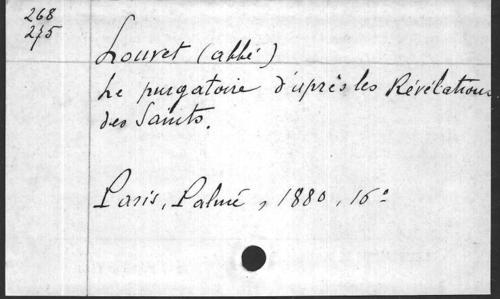 268
275
Louvet (abbé)
Le purgatoire d'après les Révélations
des Saints.
Paris, Palmé, 1880, 16°